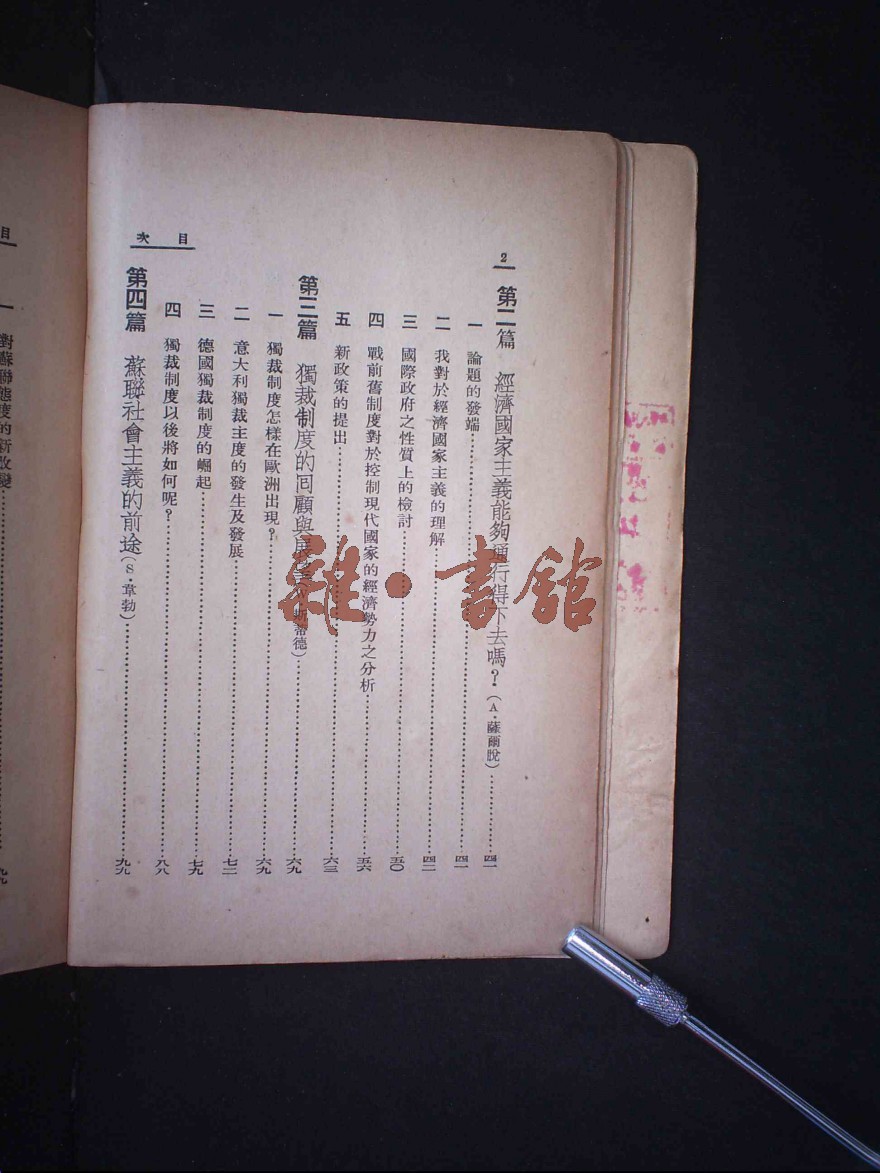 2
第二篇 經濟國家主義能夠通行得下去嗎？（A・薩爾脫）……四一
一 論題的發端……四一
二 我對於經濟國家主義的理解……四二
三 國際政府之性質上的檢討……五〇
四 戰前舊制度對於控制現代國家的經濟勢力之分析……五六
五 新政策的提出……六三
第三篇 獨裁制度的囘顧與展望 斯蒂德）……六九
一 獨裁制度怎樣在歐洲出現？……六九
二 意大利獨裁主度的發生及發展……七二
三 德國獨裁制度的崛起……七九
四 獨裁制度以後將如何呢？……八八
第四篇 蘇聯社會主義的前途（S・韋勃）……九九
目次
一 對蘇聯態度的新改變……九九
雜・書館